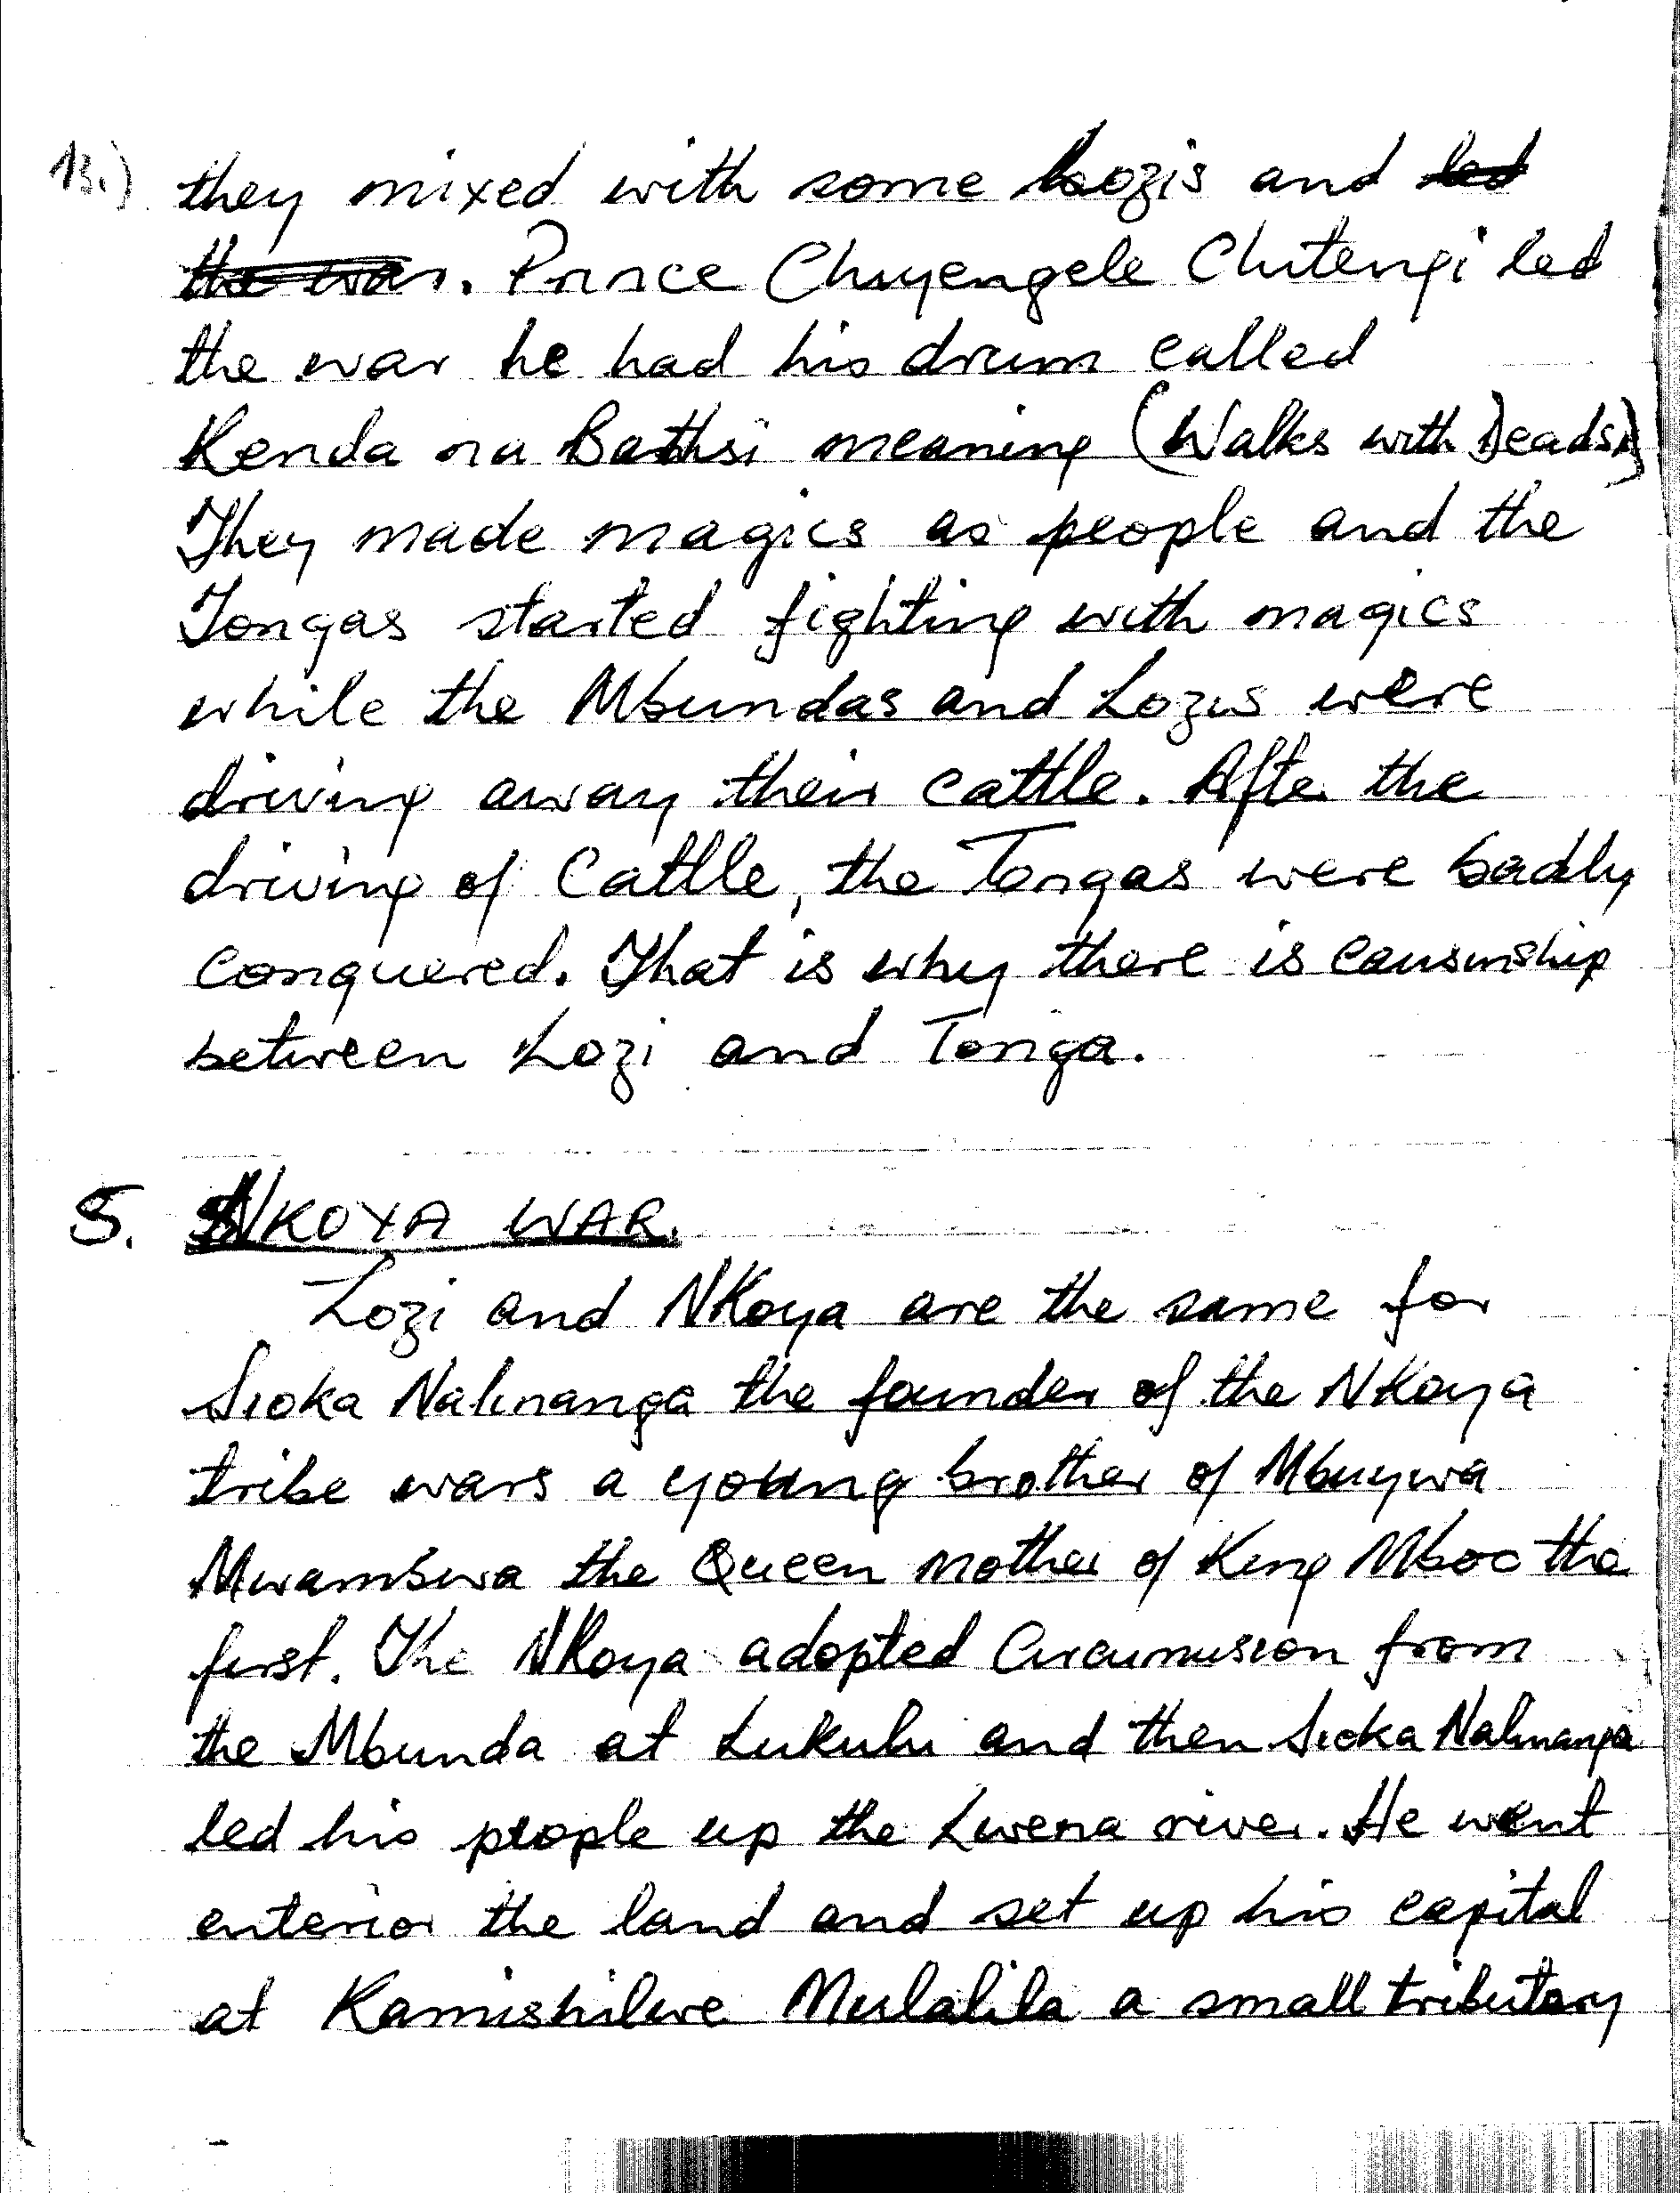 13.) they mixed with some Lozis and led
the war. Prince Chiyengele Chitengi led
the war he had his drum called
Kenda na Bathsi meaning (Walks with Deads)
They made magics as people and the
Tongas started fighting with magics
while the Mbundas and Lozis were
driving away their cattle. After the
driving of Cattle, the Tongas were badly
conquered. That is why there is causinship
between Lozi and Tonga.
5. NKOYA WAR.
Lozi and NKoya are the same for
Sioka Nalinanga the founder of the NKoya
tribe wars a young brother of Mbuywa
Mwambwa the Queen mother of King Mboo the
first. The NKoya adopted Circumusion from
the Mbunda at Lukulu and then Sioka Nalinanga
led his people up the Lwena river. He went
enterior the land and set up his capital
at Kamishilwe Mulalila a small tributary